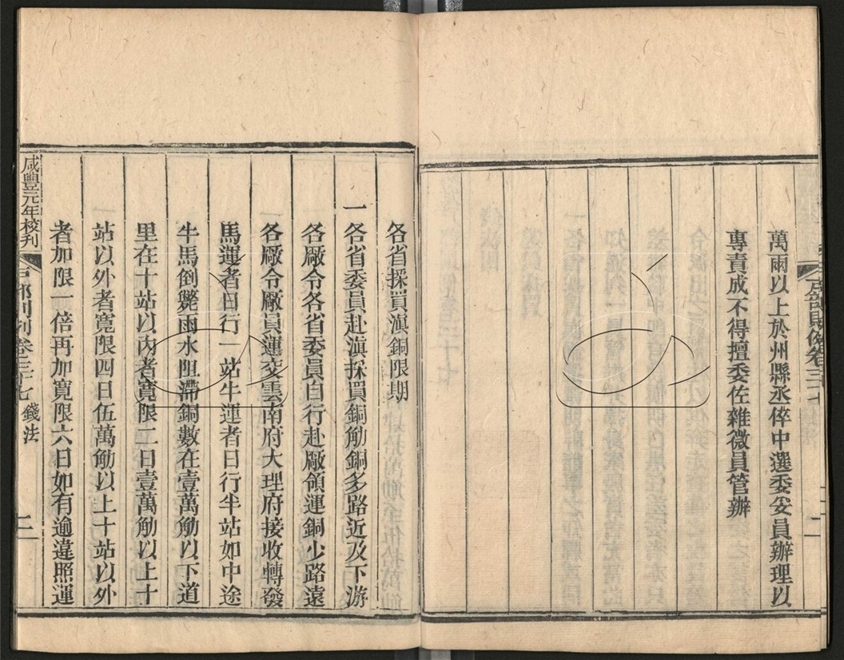 萬兩以上於州縣丞倅中選委妥員辦理以
專責成不得擅委佐雜微員管辦
戶部則例卷三十七
二
各省採買滇銅限期
一各省委員赴滇採買銅觔銅多路近及下游
各廠令各省委員自行赴廠領運銅少路遠
各廠令廠員運交雲南府大理府接收轉發
馬運者日行一站牛運者日行半站如中途
牛馬倒斃雨水阻滯銅數在壹萬觔以下道
里在十站以內者寬限二日壹萬觔以上十
站以外者寬限四日伍萬觔以上十站以外
者加限一倍再加寬限六日如有逾違照運
咸豐元年校刊
戶部則例卷三十七 錢法
二